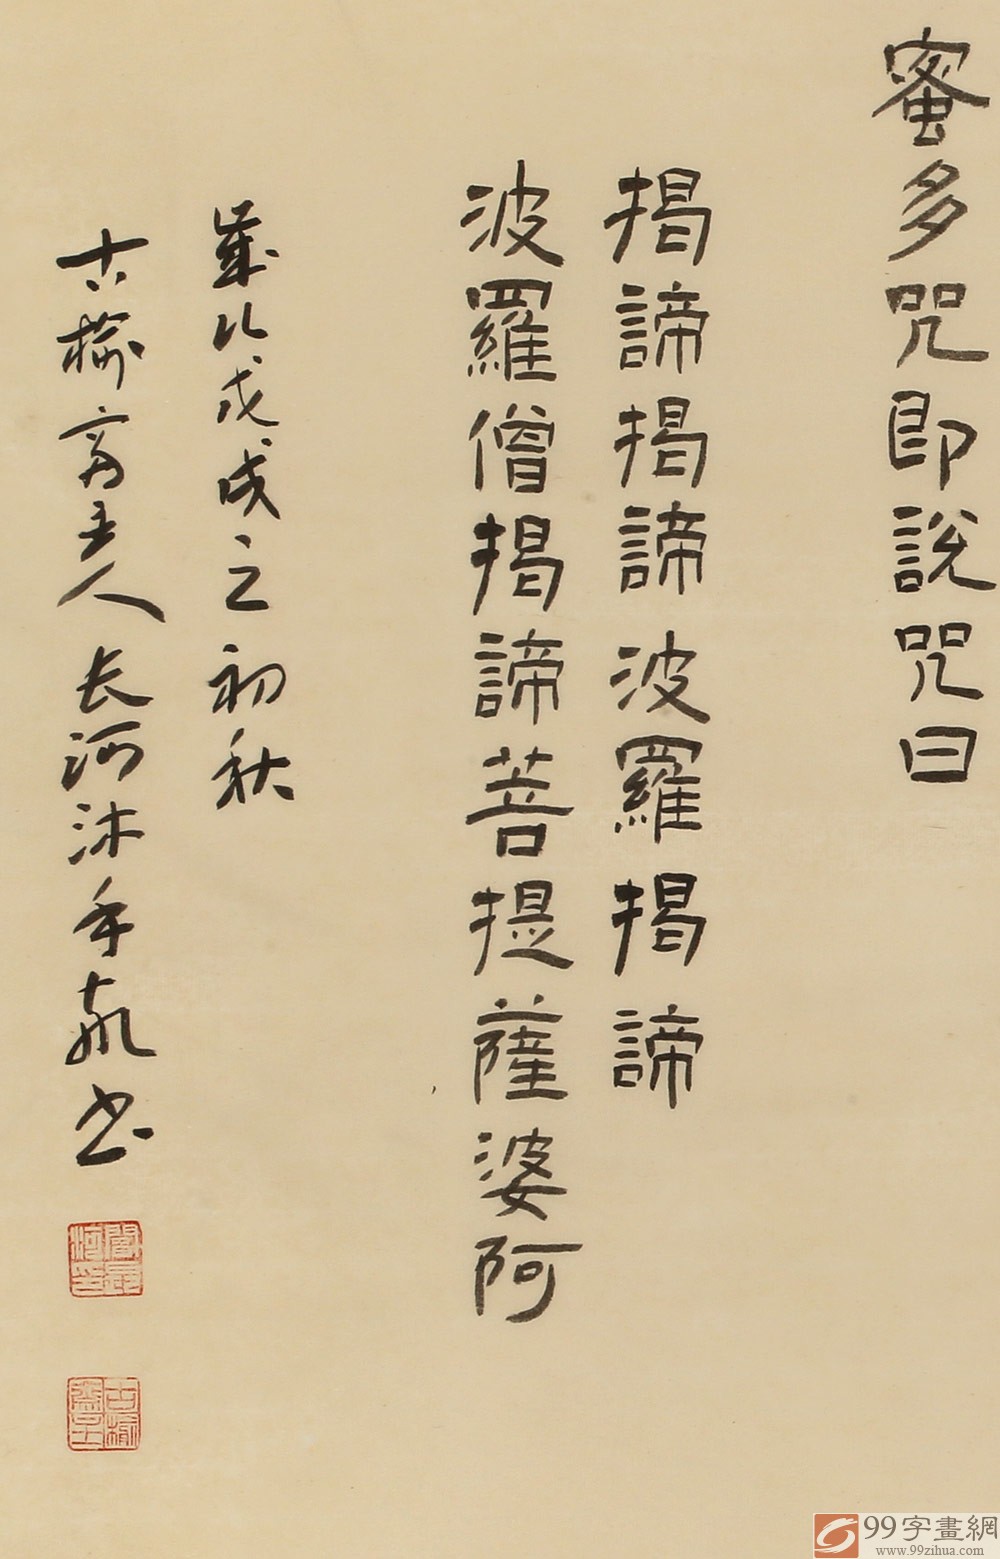 蜜多咒即說咒曰
揭諦揭諦波羅揭諦
波羅僧揭諦菩提薩婆阿
歲次戊戌之初秋
古榆斋主人长河沐手敬书
古榆齋主
99字畫網
www.99zihua.com